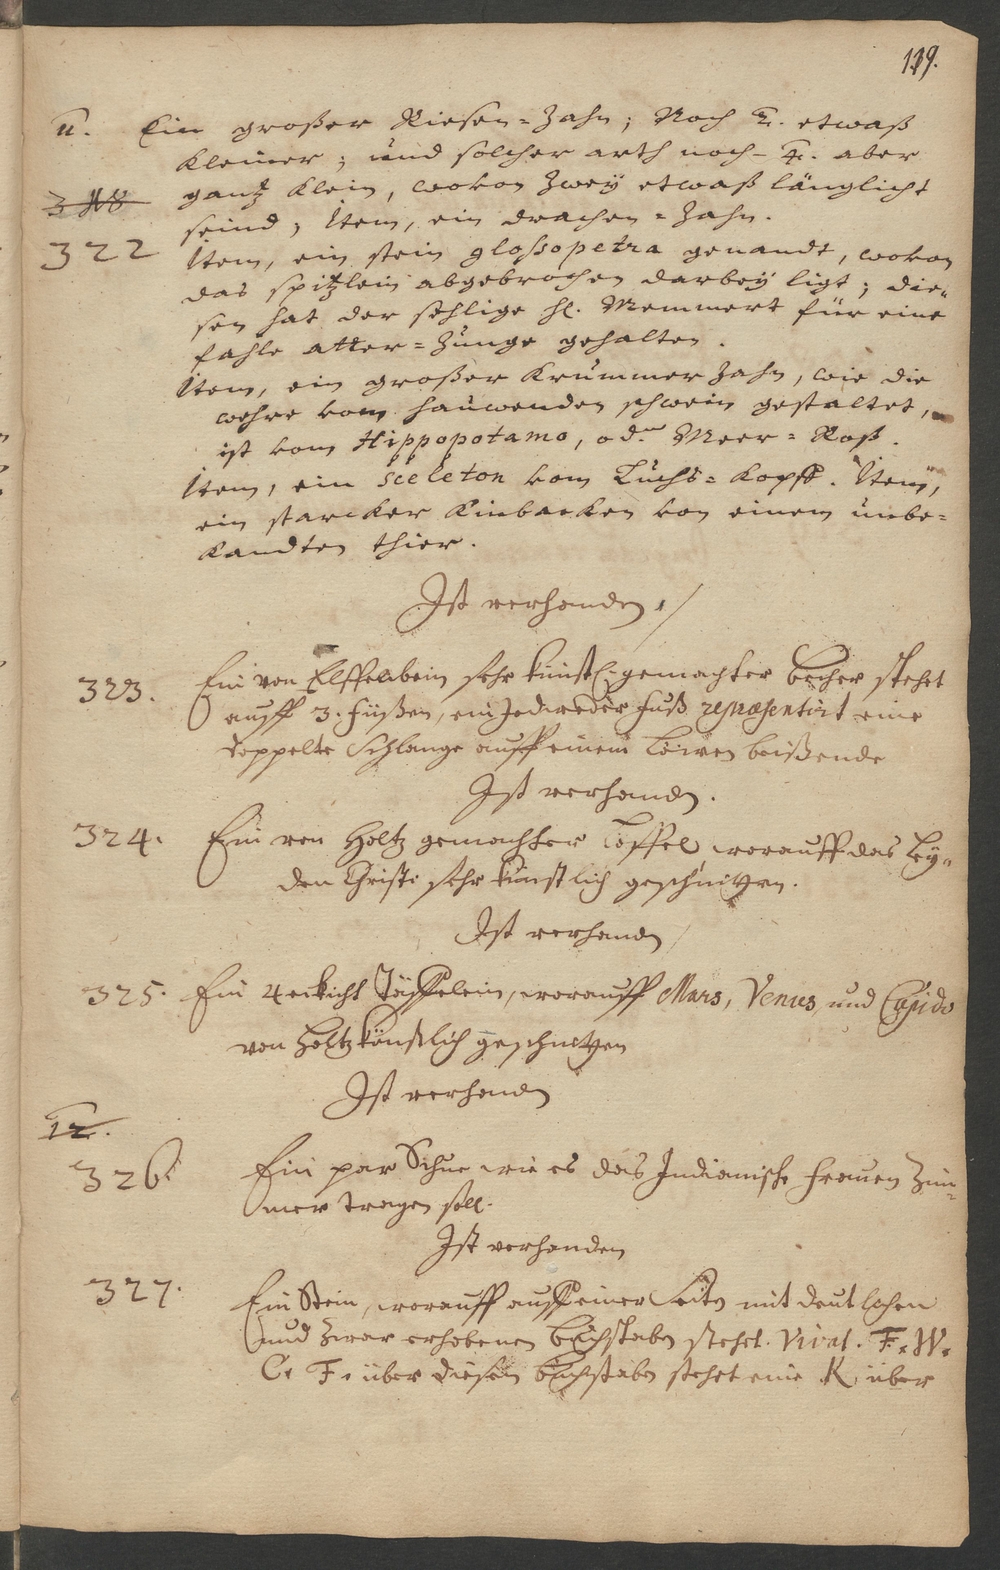 119.
11. Ein großer Riesen=Zahn; Noch 2. etwaß
kleiner; und solcher arth noch 4. aber
gantz klein, wovon Zweÿ etwaß länglicht
seind; Item, ein drachen=Zahn.
322 Item, ein stein gloßopetra genandt, wovon
das spitzlein abgebrochen darbeÿ ligt; die=
sen hat der sehlige H. Memmert für eine
fahle atter=Zunge gehalten.
Item, ein großer krummer Zahn, wie die
wehre vom hauwenden schwein gestaltet,
ist vom Hippopotamo, od. Meer=Roß.
Item, ein sceleton vom Luchs=kopff. Item,
ein starcker Kinbacken von einem unbe=
kandten thier.
Ist verhanden.
323. Ein von Elffenbein sehr künstl. gemachter becher stehet
auff 3. füßen, ein Jedweder fuß repræsentirt eine
doppelte Schlange auff einem Löwen beißende
Ist verhanden.
324. Ein von Holtz gemachter Löffel, worauff das Leÿ=
den Christi sehr künstlich geschnitzen.
Ist verhanden
325. Ein 4eckicht Täffelein, worauff Mars, Venus, und Cupido
von Holtz könstlich geschnitzen
Ist verhanden
12.
326. Ein par Schue wie es das Indianische frauen Zim=
mer tragen soll.
Ist verhanden
327. Ein Stein, worauff auff einer Seiten mit deutlichen
und zwar erhobenen buchstaben stehet. Vivat. F. W.
C. F. über diesen buchstaben stehet eine K, über